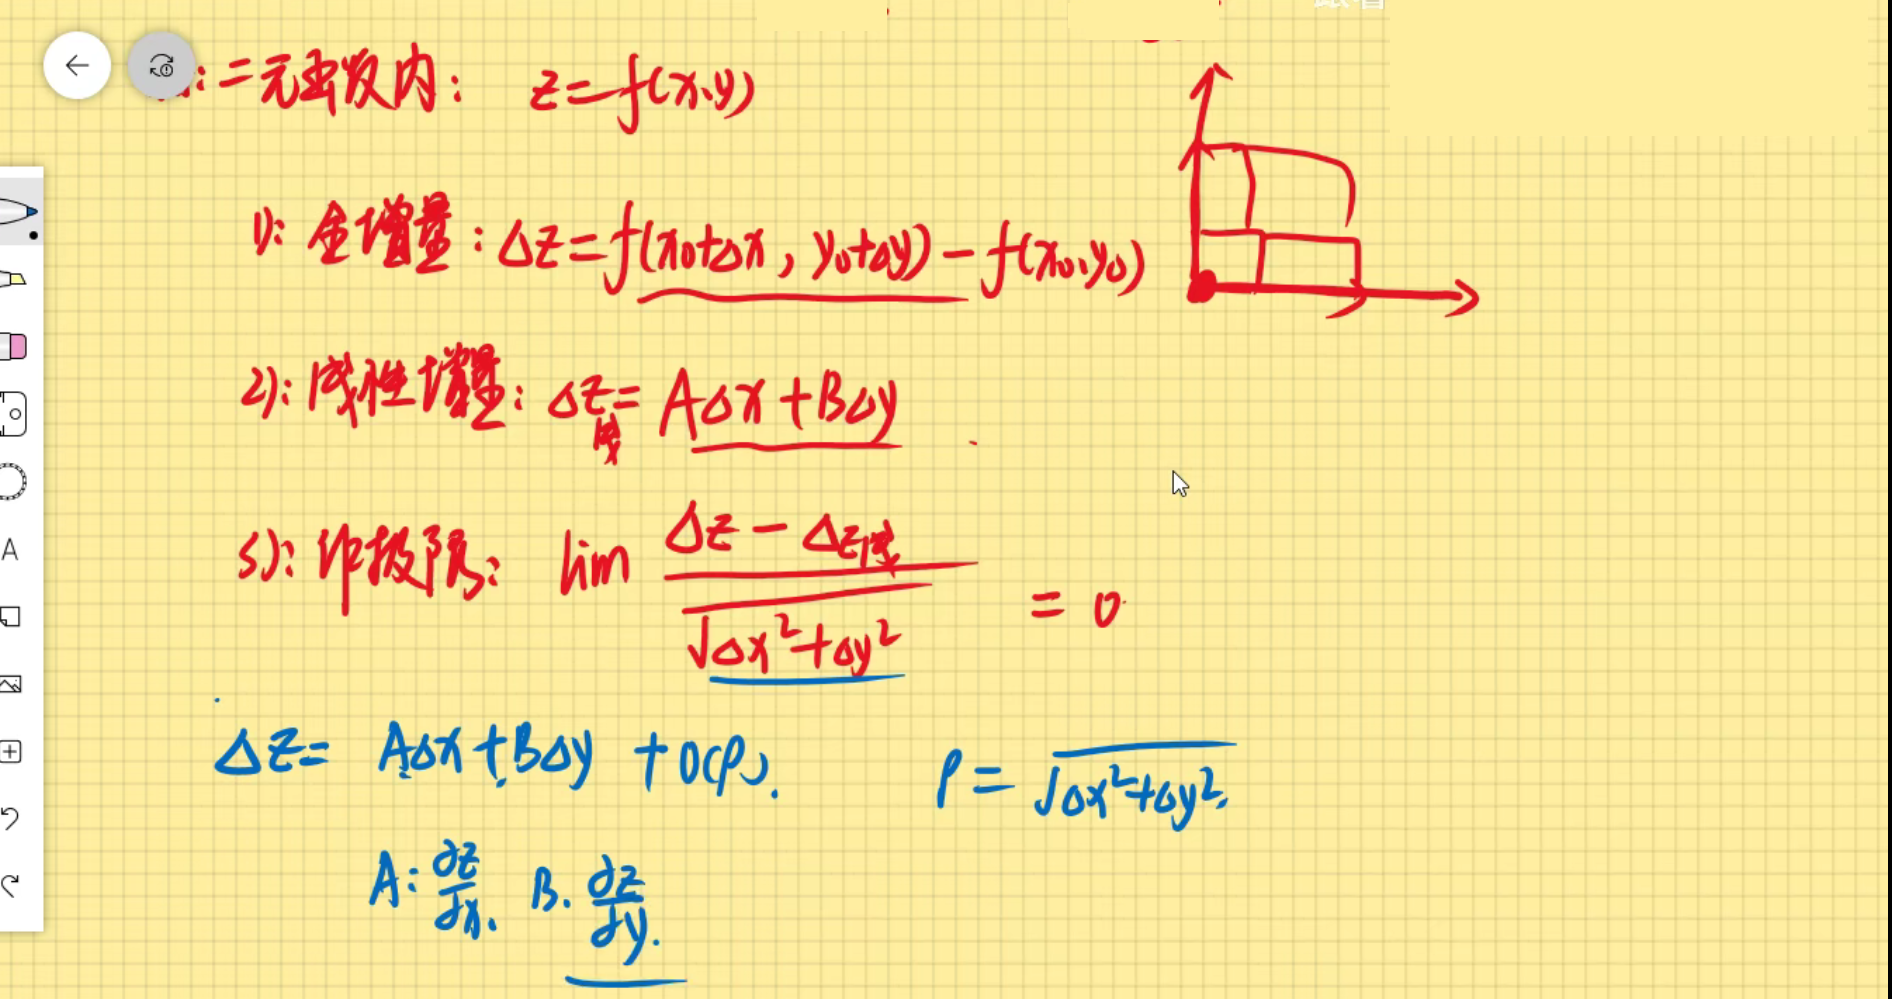 :二元函数内: z=f(x,y)
1): 全增量: Δz=f(x₀+Δx, y₀+Δy)-f(x₀,y₀)
2): 线性增量: Δz线=AΔx+BΔy
3): 作极限: lim (Δz-Δz线)/√(Δx²+Δy²) =0
Δz= AΔx+BΔy +o(ρ). ρ=√(Δx²+Δy²)
A: ∂z/∂x. B. ∂z/∂y.
A